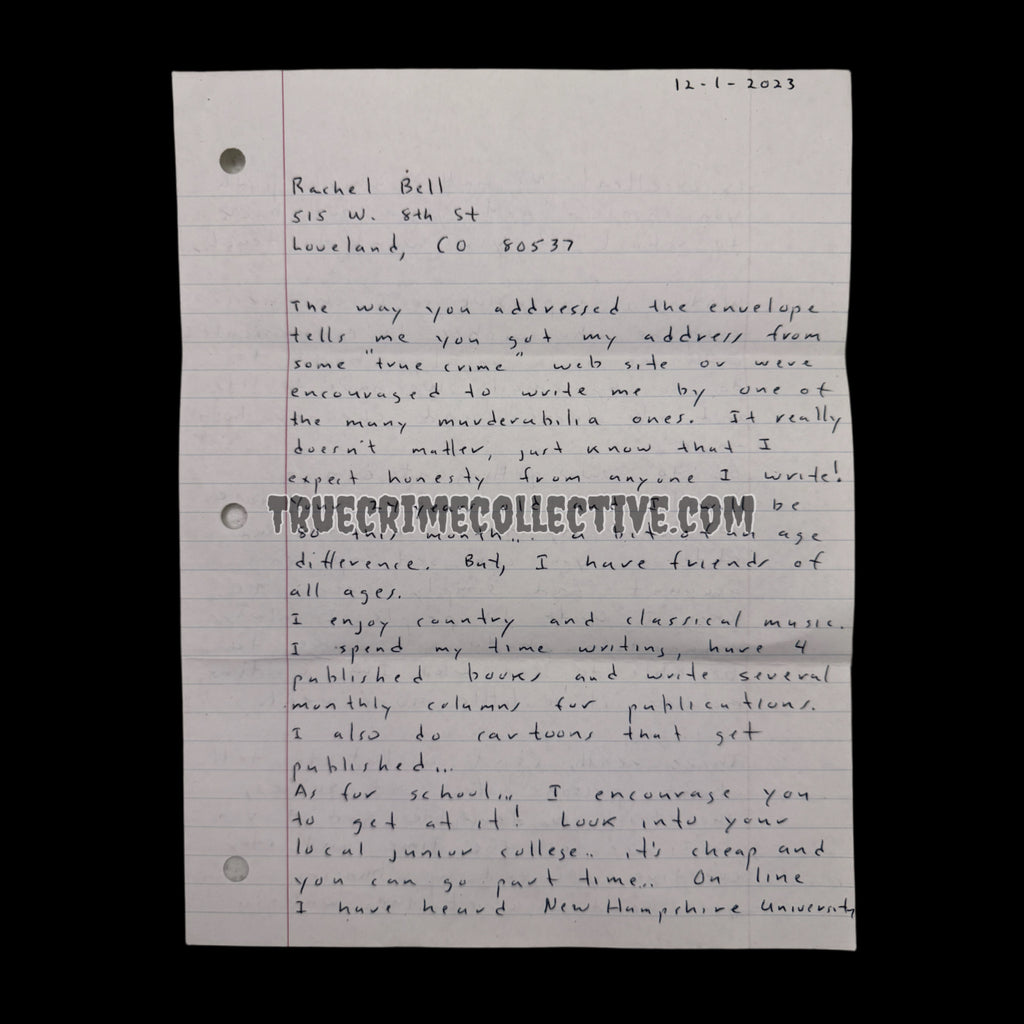 12-1-2023
Rachel Bell
515 W. 8th St
Loveland, CO 80537
The way you addressed the envelope
tells me you got my address from
some "true crime" web site or were
encouraged to write me by one of
the many murderabilia ones. It really
doesn't matter, just know that I
expect honesty from anyone I write!
TRUECRIMECOLLECTIVE.COM
be
80 this month... a bit of an age
difference. But, I have friends of
all ages.
I enjoy country and classical music.
I spend my time writing, have 4
published books and write several
monthly columns for publications.
I also do cartoons that get
published...
As for school... I encourage you
to get at it! Look into your
local junior college.. it's cheap and
you can go part time... On line
I have heard New Hampshire University